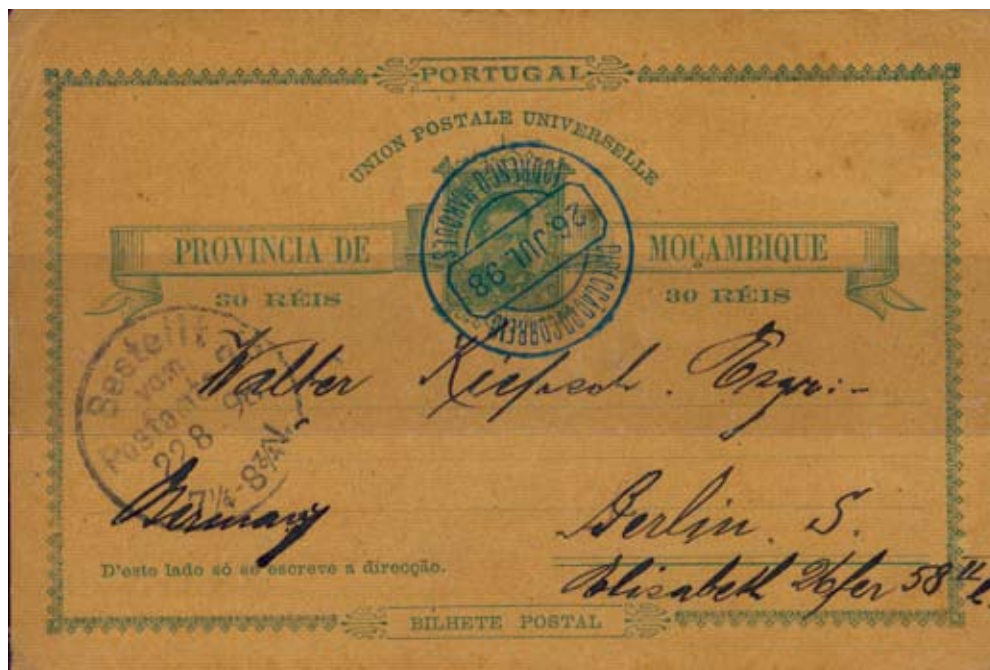 PORTUGAL
UNION POSTALE UNIVERSELLE
PROVINCIA DE MOÇAMBIQUE
30 RÉIS 30 RÉIS
LOURENÇO MARQUES
26. JUL. 98
DIRECÇÃO DO CORREIO
Bestellt
vom
Postamte
22 8 98
7¼-8¾N.
Walter Esqr:-
Germany
Berlin. S.
Elisabeth Ufer 58 II
D'este lado só se escreve a direcção.
BILHETE POSTAL